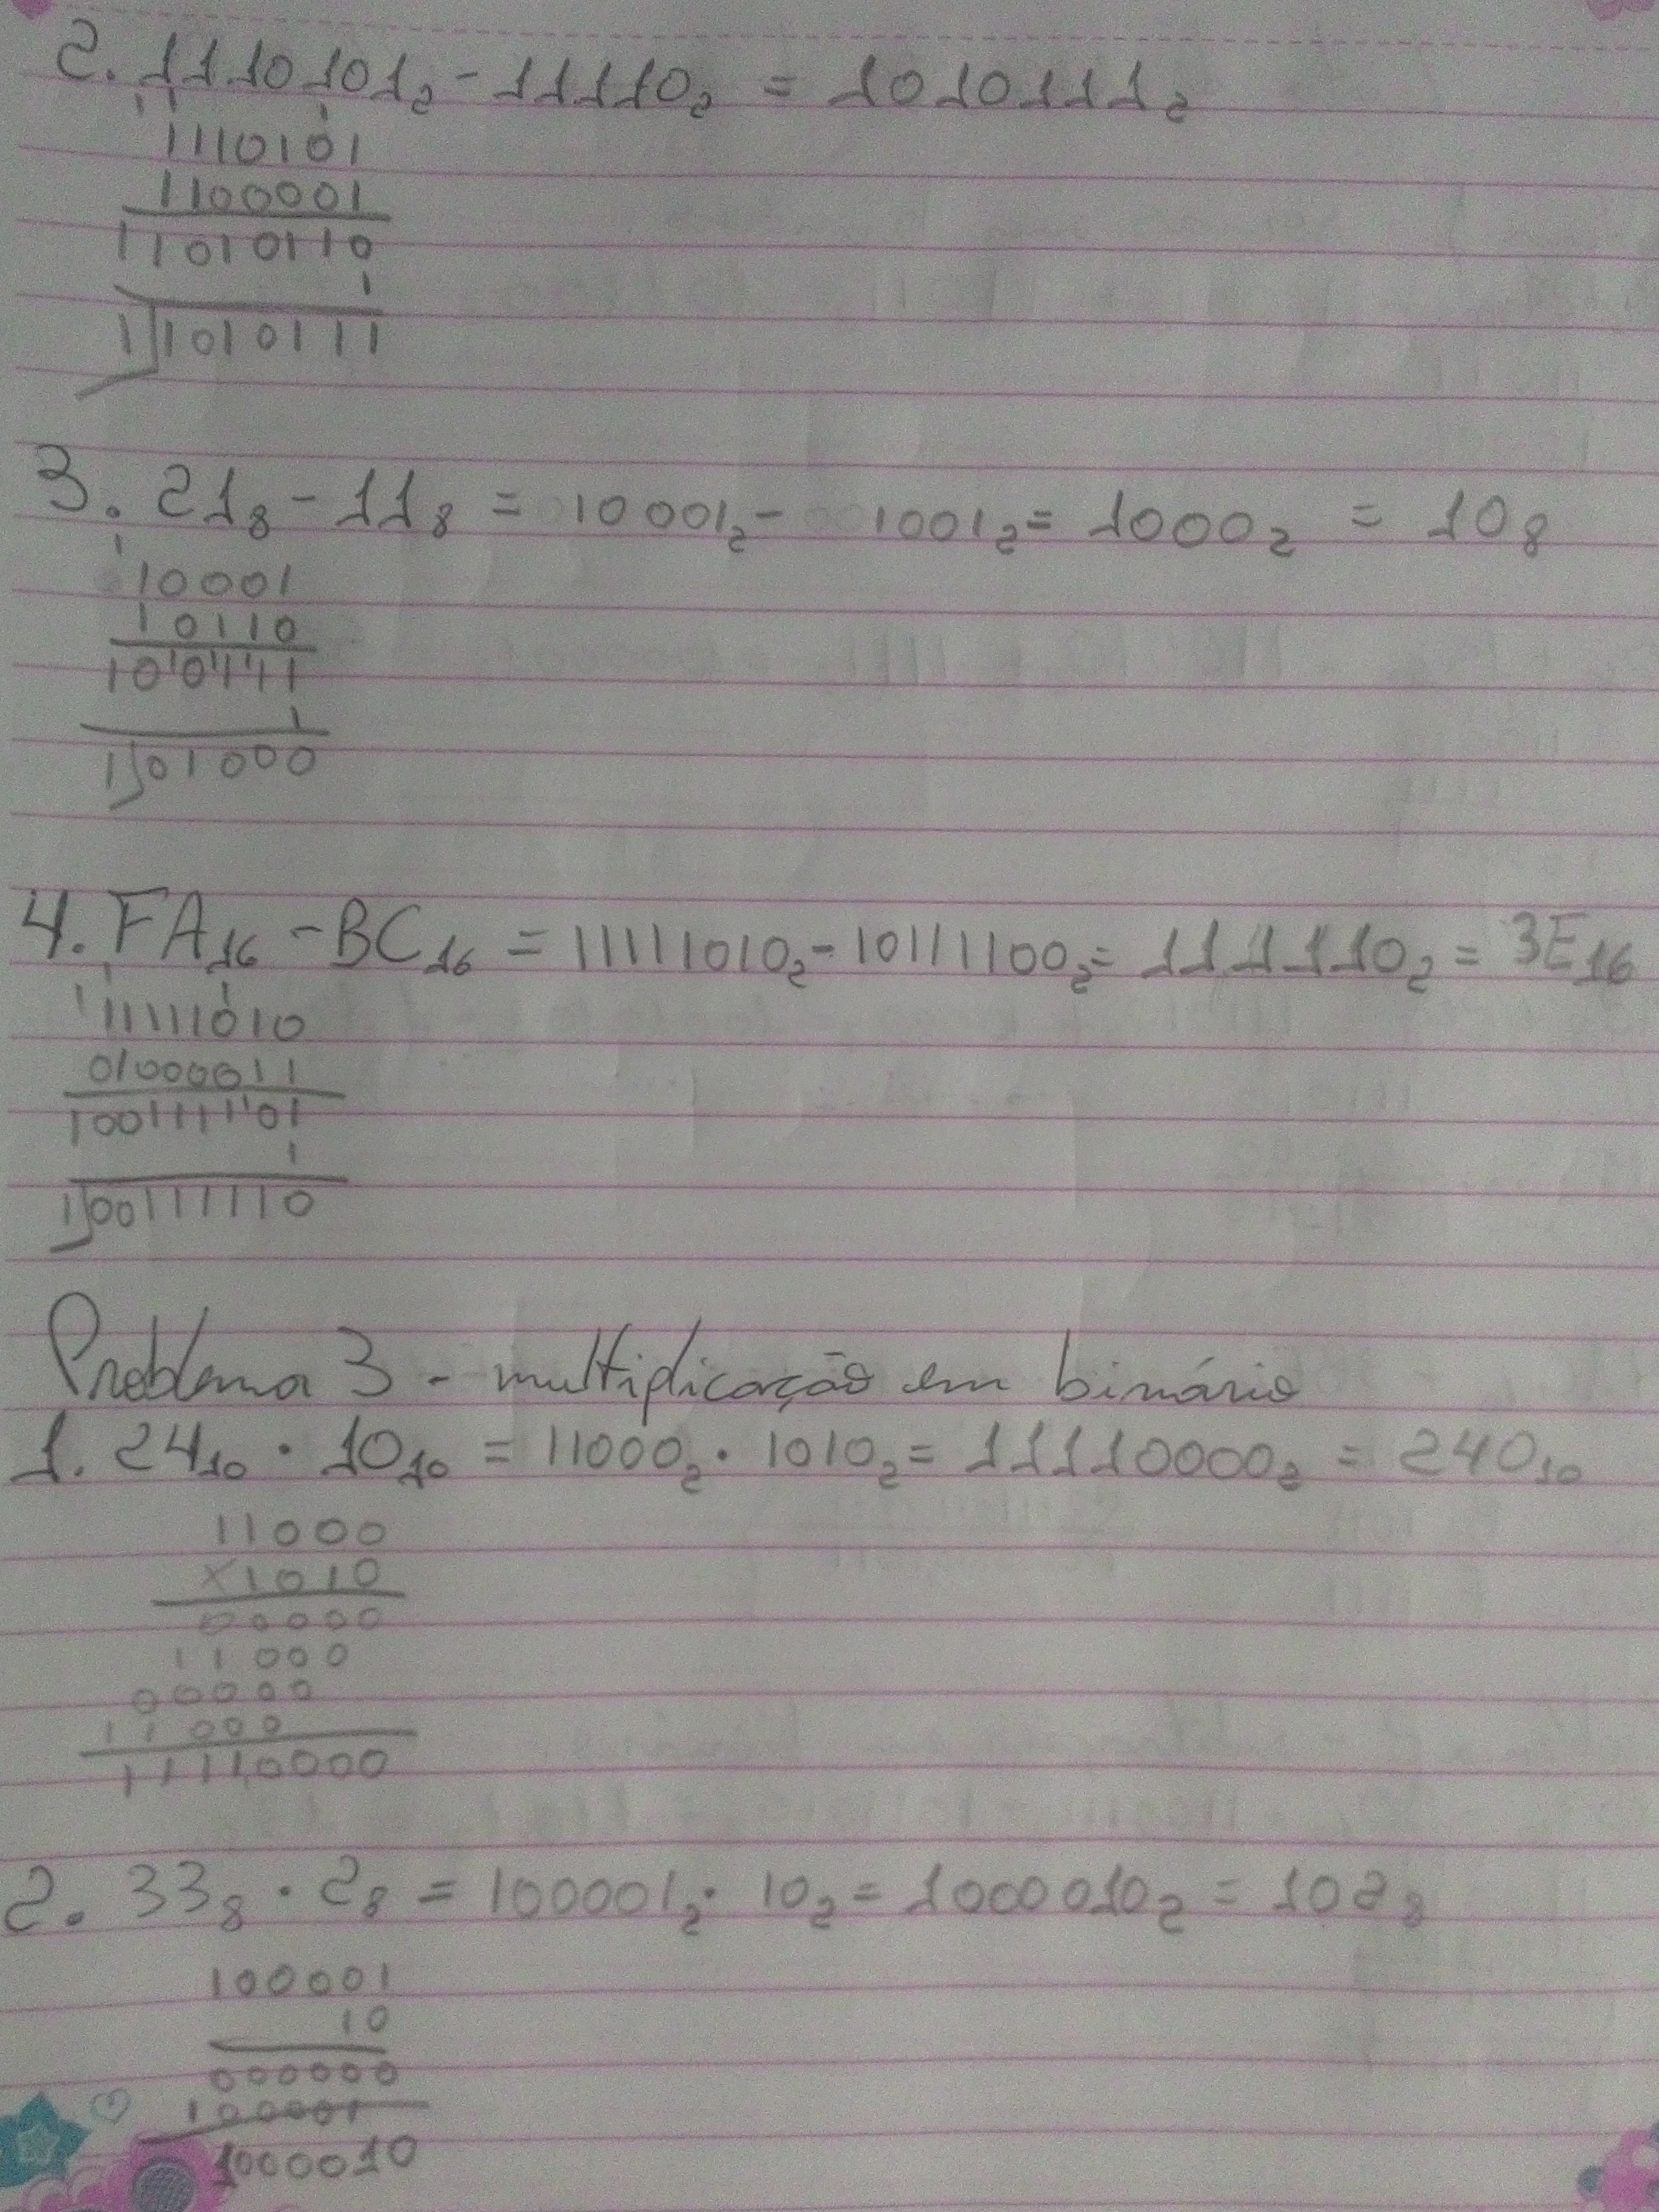 2. 1110101₂ - 11110₂ = 1010111₂
1 1 1
1110101
1100001
11010110
1
1 1010111
3. 21₈ - 11₈ = 10001₂ - 1001₂ = 1000₂ = 10₈
1
10001
10110
100111
1
1 01000
4. FA₁₆ - BC₁₆ = 11111010₂ - 10111100₂ = 111110₂ = 3E₁₆
1 1 1
11111010
01000011
100111101
1
1 00111110
Problema 3 - multiplicação em binário
1. 24₁₀ · 10₁₀ = 11000₂ · 1010₂ = 11110000₂ = 240₁₀
11000
x1010
00000
11000
00000
11000
11110000
2. 33₈ · 2₈ = 100001₂ · 10₂ = 1000010₂ = 102₈
100001
10
000000
100001
1000010